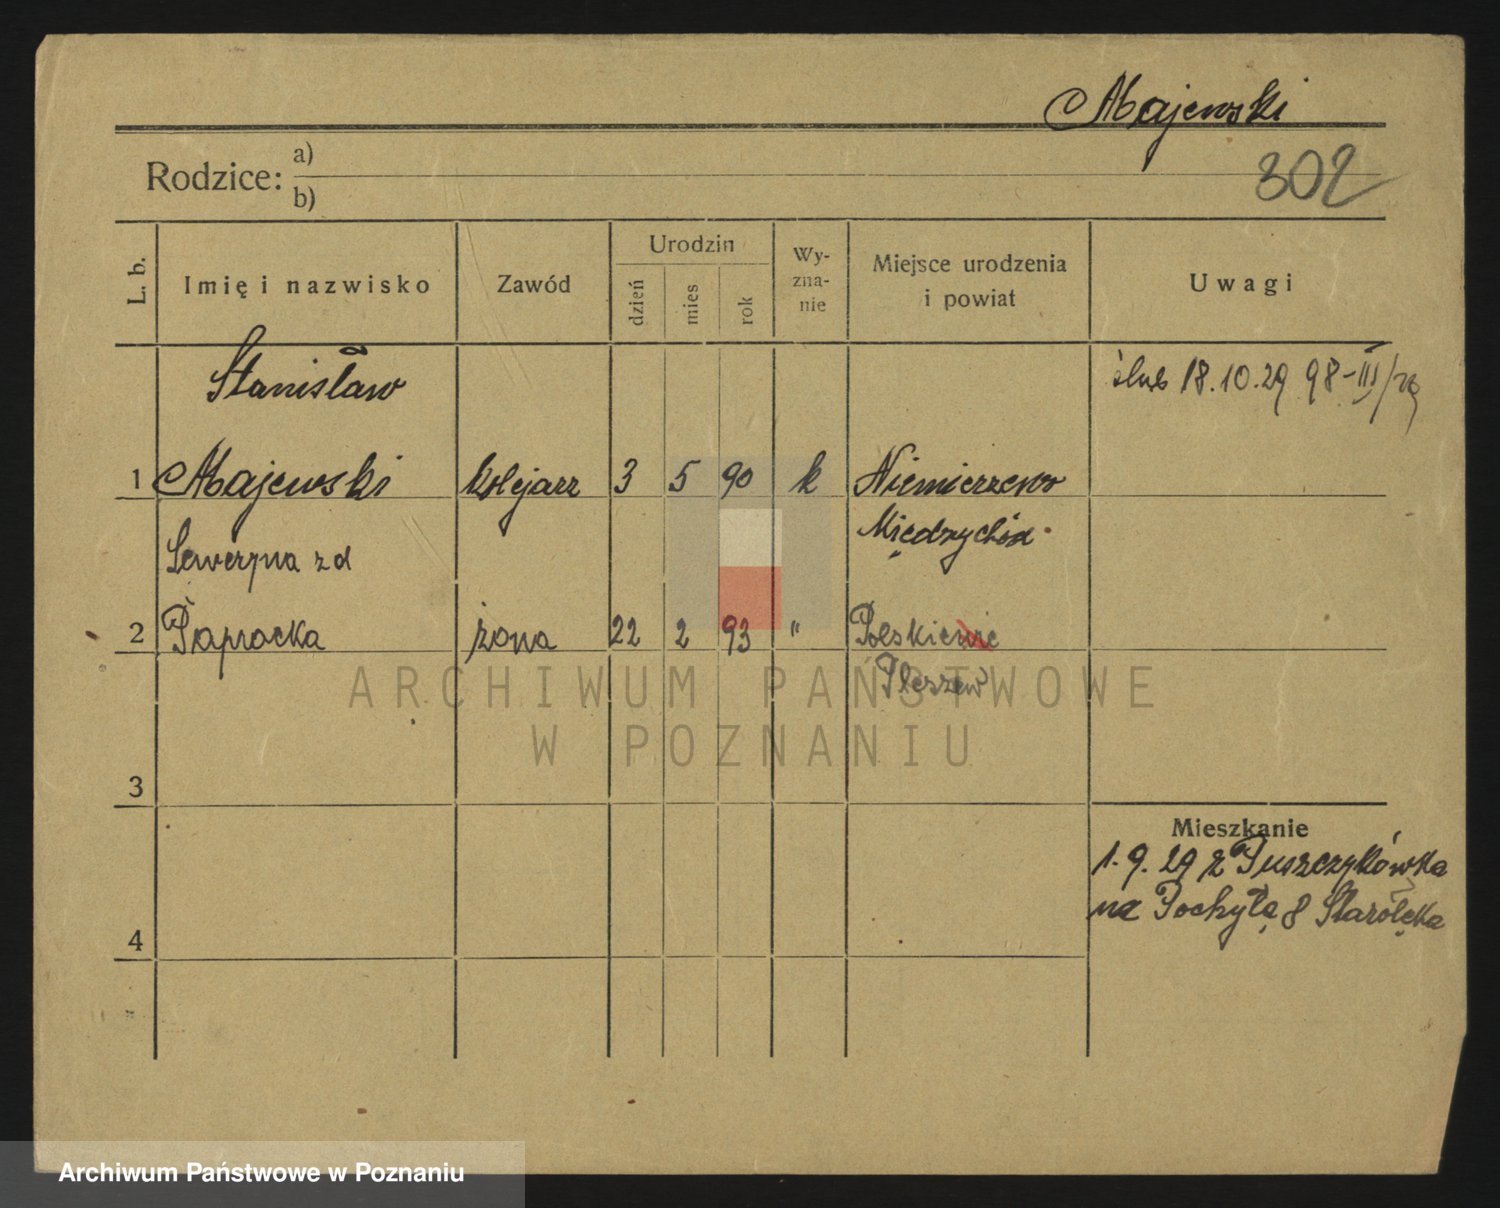 Majewski
302
Rodzice:
a)
b)
L. b.
Imię i nazwisko
Zawód
Urodzin
dzień
mies
rok
Wy-
zna-
nie
Miejsce urodzenia
i powiat
Uwagi
Stanisław
ślub 18.10.29 98-III/29
1 Majewski kolejarz 3 5 90 k Niemierzewo
Międzychód
Seweryna z d
2 Paprocka żona 22 2 93 "
Pleszew
ARCHIWUM PAŃSTWOWE
W POZNANIU
3
Mieszkanie
1.9.29 z Puszczykówka
na Pochyłą 8 Starołęka
4
Archiwum Państwowe w Poznaniu